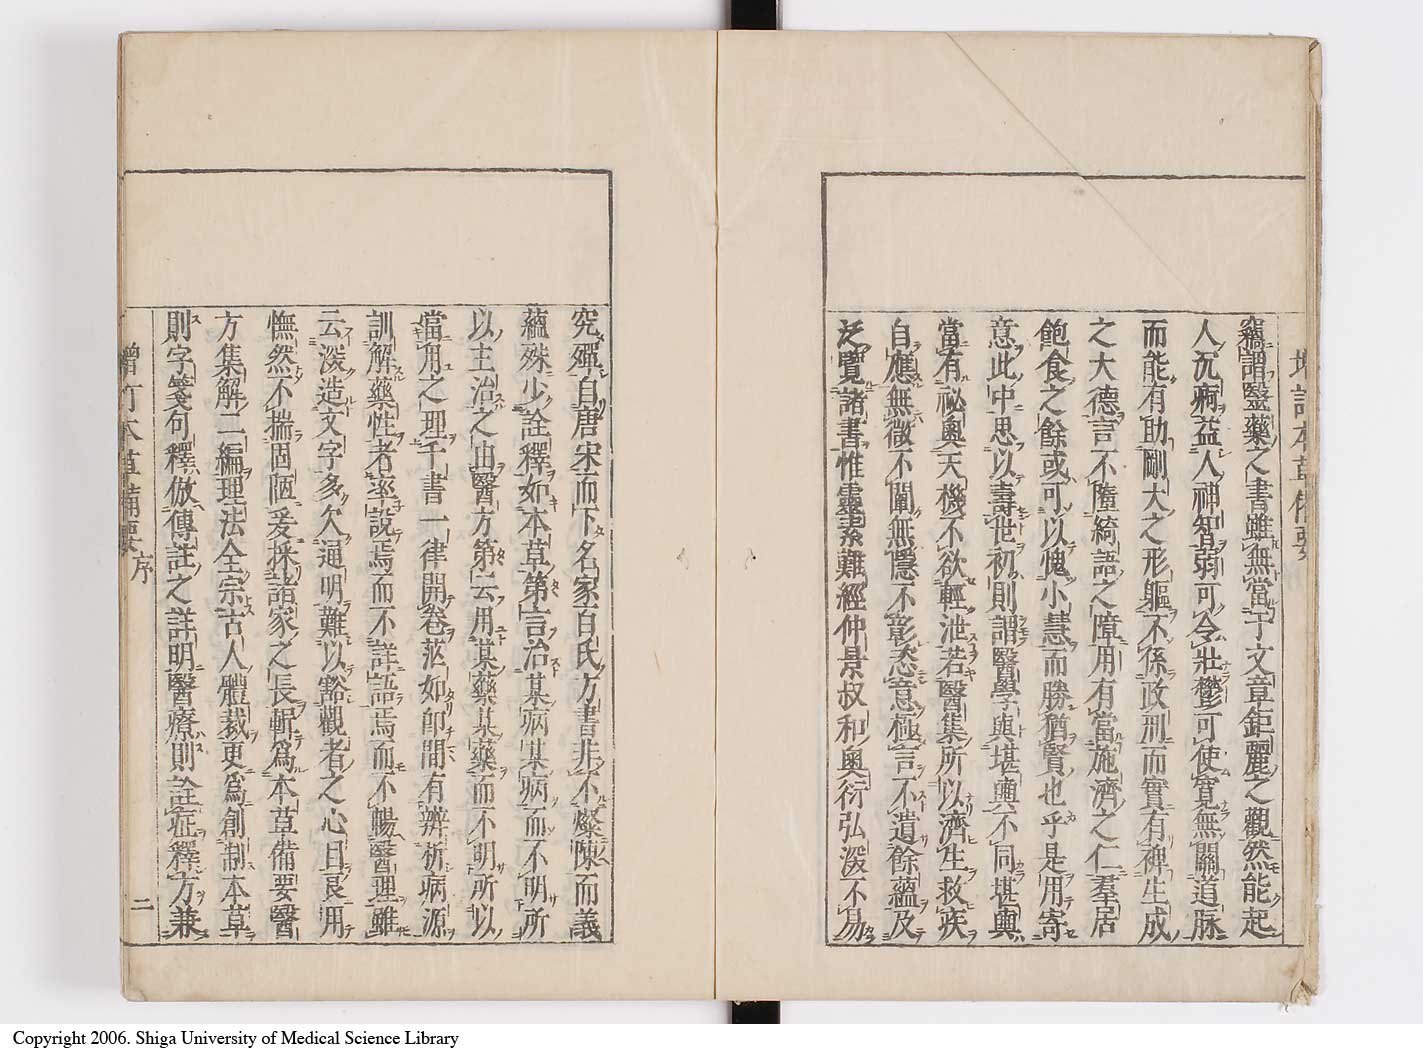 增訂本草備要
竊謂醫藥之書雖無當于文章鉅麗之觀然能起
人沉痾益人神智弱可令壯鬱可使寬無關道脉
而能有助剛大之形軀不係政刑而實有裨生成
之大德言不墮綺語之障用有當施濟之仁羣居
飽食之餘或可以愧小慧而勝猶賢也乎是用寄
意此中思以壽世初則謂醫學與堪輿不同堪輿
當有祕奧天機不欲輕泄若醫集所以濟生救疾
自應無徵不闡無隱不彰恣意極言不遺餘蘊及
泛覽諸書惟靈素難經仲景叔和奧衍弘深不易
究殫自唐宋而下名家百氏方書非不燦陳而義
蘊殊少詮釋如本草第言治某病某病而不明所
以主治之由醫方第云用某藥某藥而不明所以
當用之理千書一律開卷茫如卽間有辨析病源
訓解藥性者率說焉而不詳語焉而不暢醫理雖
云深造文字多欠通明難以豁觀者之心目良用
憮然不揣固陋爰採諸家之長輯爲本草備要醫
方集解二編理法全宗古人體裁更爲創制本草
則字箋句釋倣傳註之詳明醫療則詮症釋方兼
增訂本草備要 序
二
Copyright 2006. Shiga University of Medical Science Library